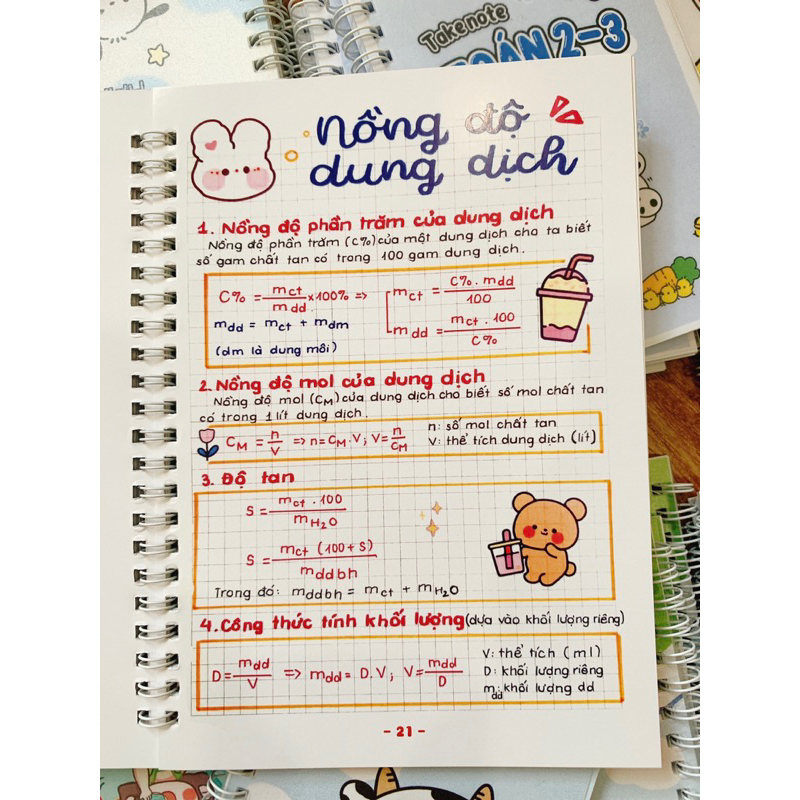 Take note
TOÁN 2-3
Nồng độ
dung dịch
1. Nồng độ phần trăm của dung dịch
Nồng độ phần trăm (C%) của một dung dịch cho ta biết
số gam chất tan có trong 100 gam dung dịch.
C% = mct/mdd x100% => mct = C%. mdd/100
mdd = mct + mdm
mdd = mct . 100/C%
(dm là dung môi)
2. Nồng độ mol của dung dịch
Nồng độ mol (CM) của dung dịch cho biết số mol chất tan
có trong 1 lít dung dịch.
CM = n/V => n = CM.V; V = n/CM
n: số mol chất tan
V: thể tích dung dịch (lít)
3. Độ tan
S = mct . 100/mH2O
S = mct (100 + S)/mddbh
Trong đó: mddbh = mct + mH2O
4. Công thức tính khối lượng (dựa vào khối lượng riêng)
D = mdd/V => mdd = D.V; V = mdd/D
V: thể tích (ml)
D: khối lượng riêng
mdd: khối lượng dd
- 21 -